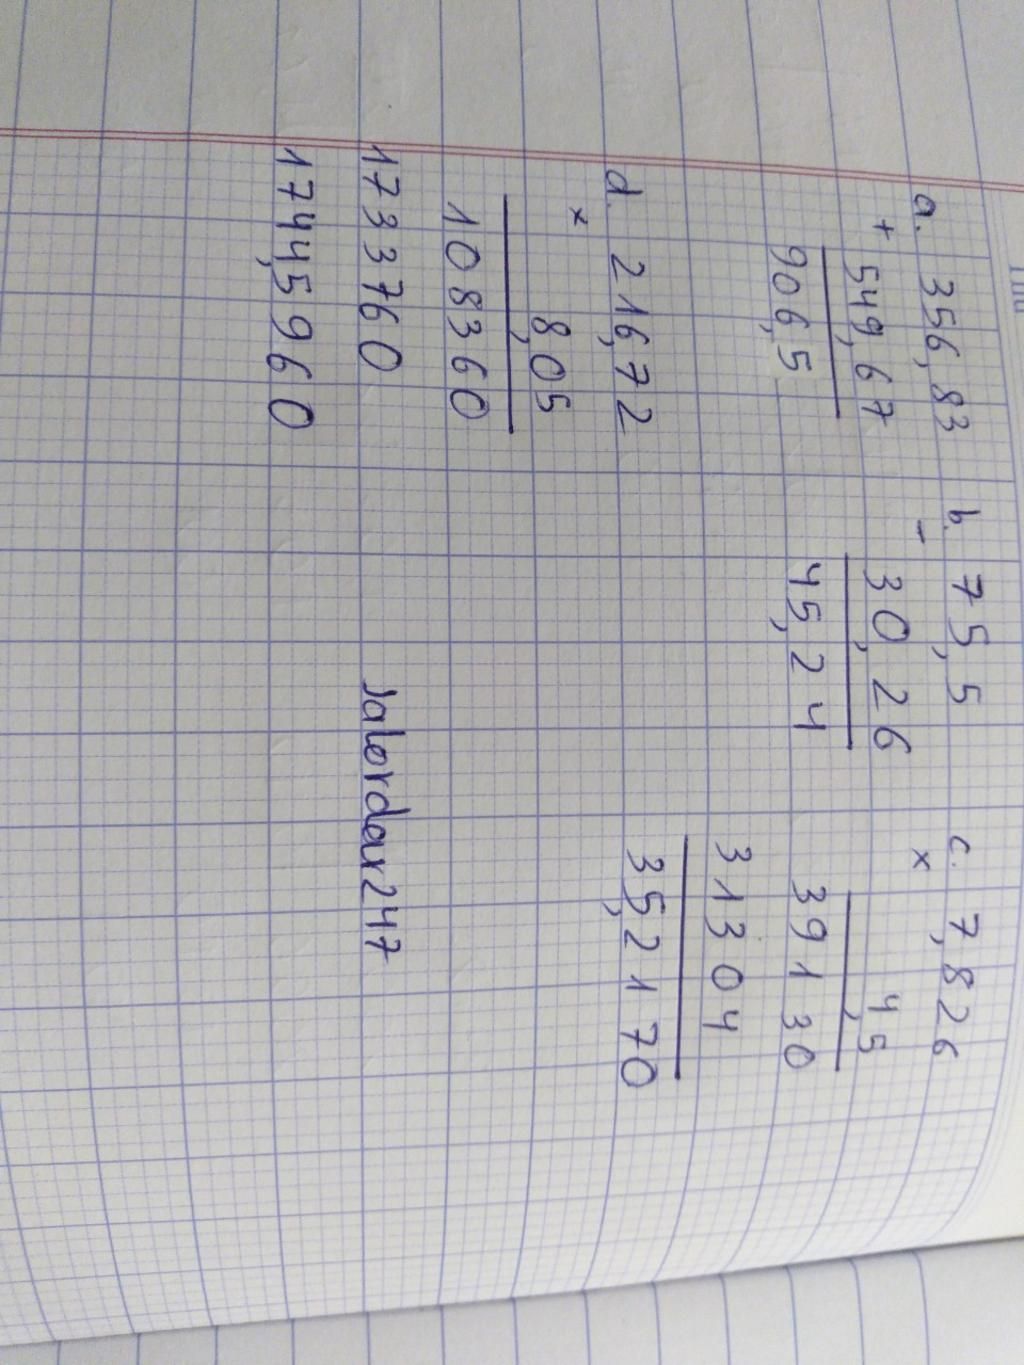 a. 356,83
+ 549,67
906,5
b. 75,5
- 30,26
45,24
c. 7,826
x 4,5
39130
31304
35,2170
d. 216,72
x 8,05
108360
173376 0
1744,5960
Jalordar247